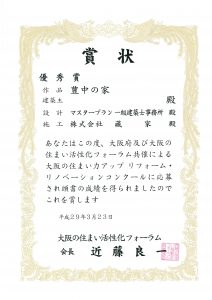 賞状
優秀賞
作品 豊中の家
建築主 殿
設計 マスタープラン一級建築士事務所 殿
施工 株式会社 藏家 殿
あなたはこの度、大阪府及び大阪の
住まい活性化フォーラム共催による
大阪の住まい力アップ リフォーム・
リノベーションコンクールに応募
され頭書の成績を得られましたので
これを賞します
平成29年3月23日
大阪の住まい活性化フォーラム
会長 近藤良一